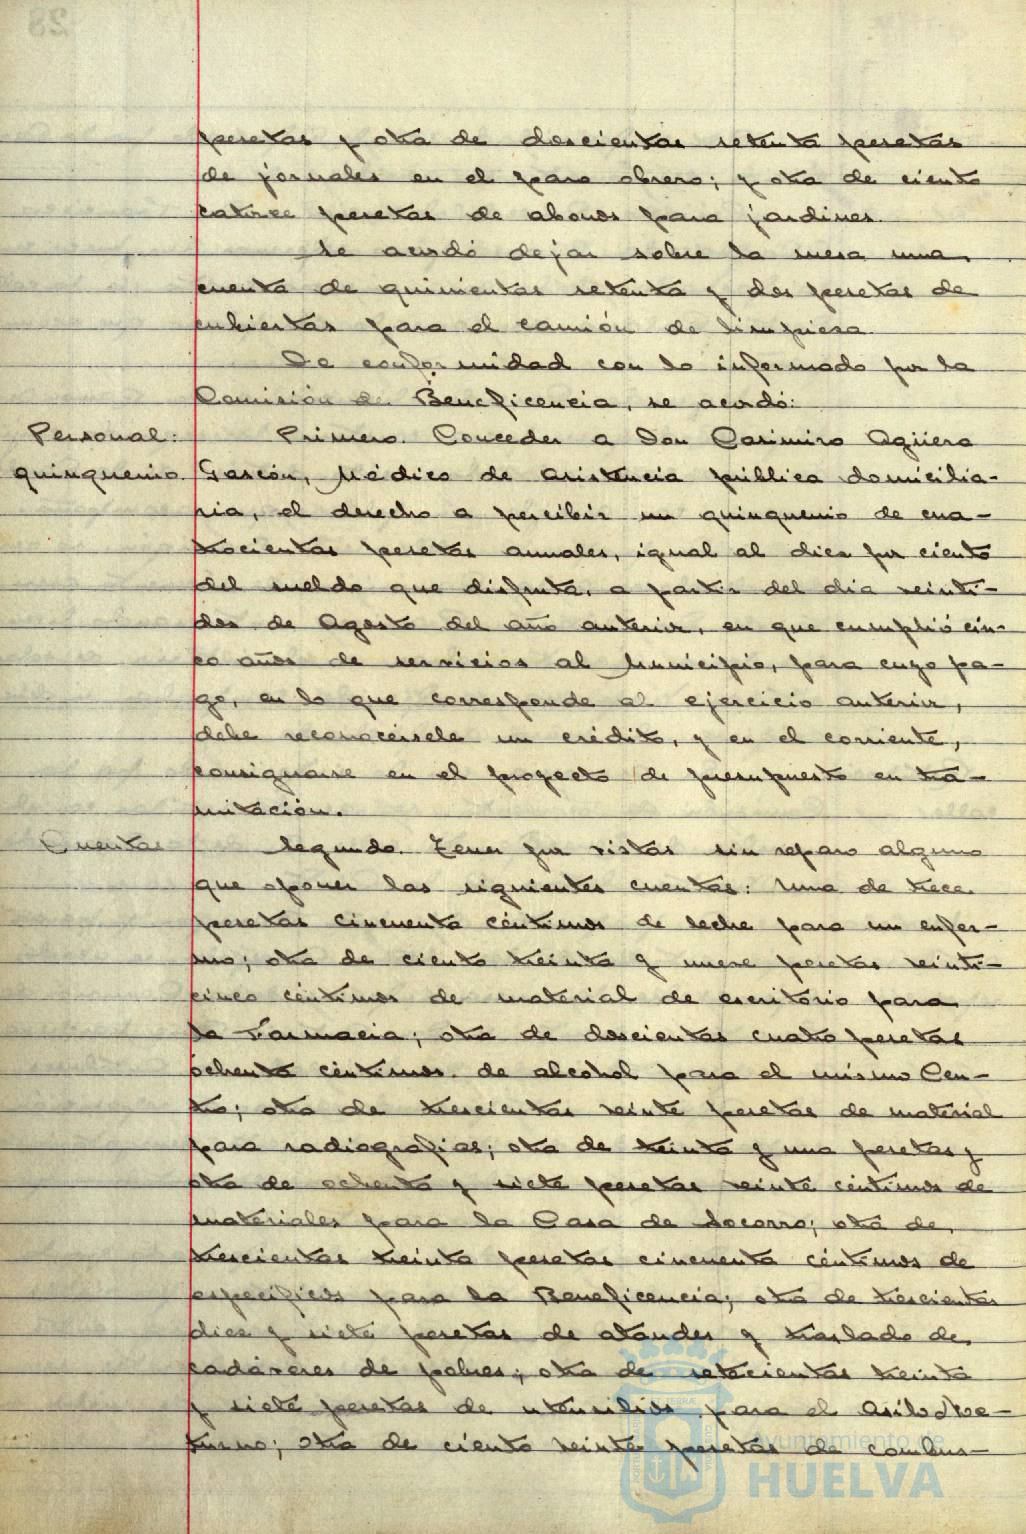 pesetas y otra de doscientas setenta pesetas
de jornales en el paro obrero; y otra de ciento
catorce pesetas de abonos para jardines.
Se acordó dejar sobre la mesa una
cuenta de quinientas setenta y dos pesetas de
cubiertas para el camión de limpieza.
De conformidad con lo informado por la
Comisión de Beneficencia, se acordó:
Personal:
quinquenio.
Primero. Conceder a Don Casimiro Agüera
Garcón, Médico de asistencia pública domicilia-
ria, el derecho a percibir un quinquenio de cua-
trocientas pesetas anuales, igual al diez por ciento
del sueldo que disfruta, a partir del día veinti-
dos de Agosto del año anterior, en que cumplió cin-
co años de servicios al Municipio, para cuyo pa-
go, en lo que corresponde al ejercicio anterior,
debe reconocérsele un crédito, y en el corriente,
consignarse en el proyecto de presupuesto en tra-
mitación.
Cuentas
Segundo. Tener por vistas sin reparo alguno
que oponer las siguientes cuentas: Una de trece
pesetas cincuenta céntimos de leche para un enfer-
mo; otra de ciento treinta y nueve pesetas veinti-
cinco céntimos de material de escritorio para
la Farmacia; otra de doscientas cuatro pesetas
ochenta céntimos de alcohol para el mismo Cen-
tro; otra de trescientas veinte pesetas de material
para radiografías; otra de treinta y una pesetas y
otra de ochenta y siete pesetas veinte céntimos de
materiales para la Casa de Socorro; otra de
trescientas treinta pesetas cincuenta céntimos de
específicos para la Beneficencia; otra de trescientas
diez y siete pesetas de ataudes y traslado de
cadáveres de pobres; otra de setecientas treinta
y siete pesetas de utensilios para el Asilo Noc-
turno; otra de ciento veinte pesetas de combus-
Ayuntamiento de
HUELVA